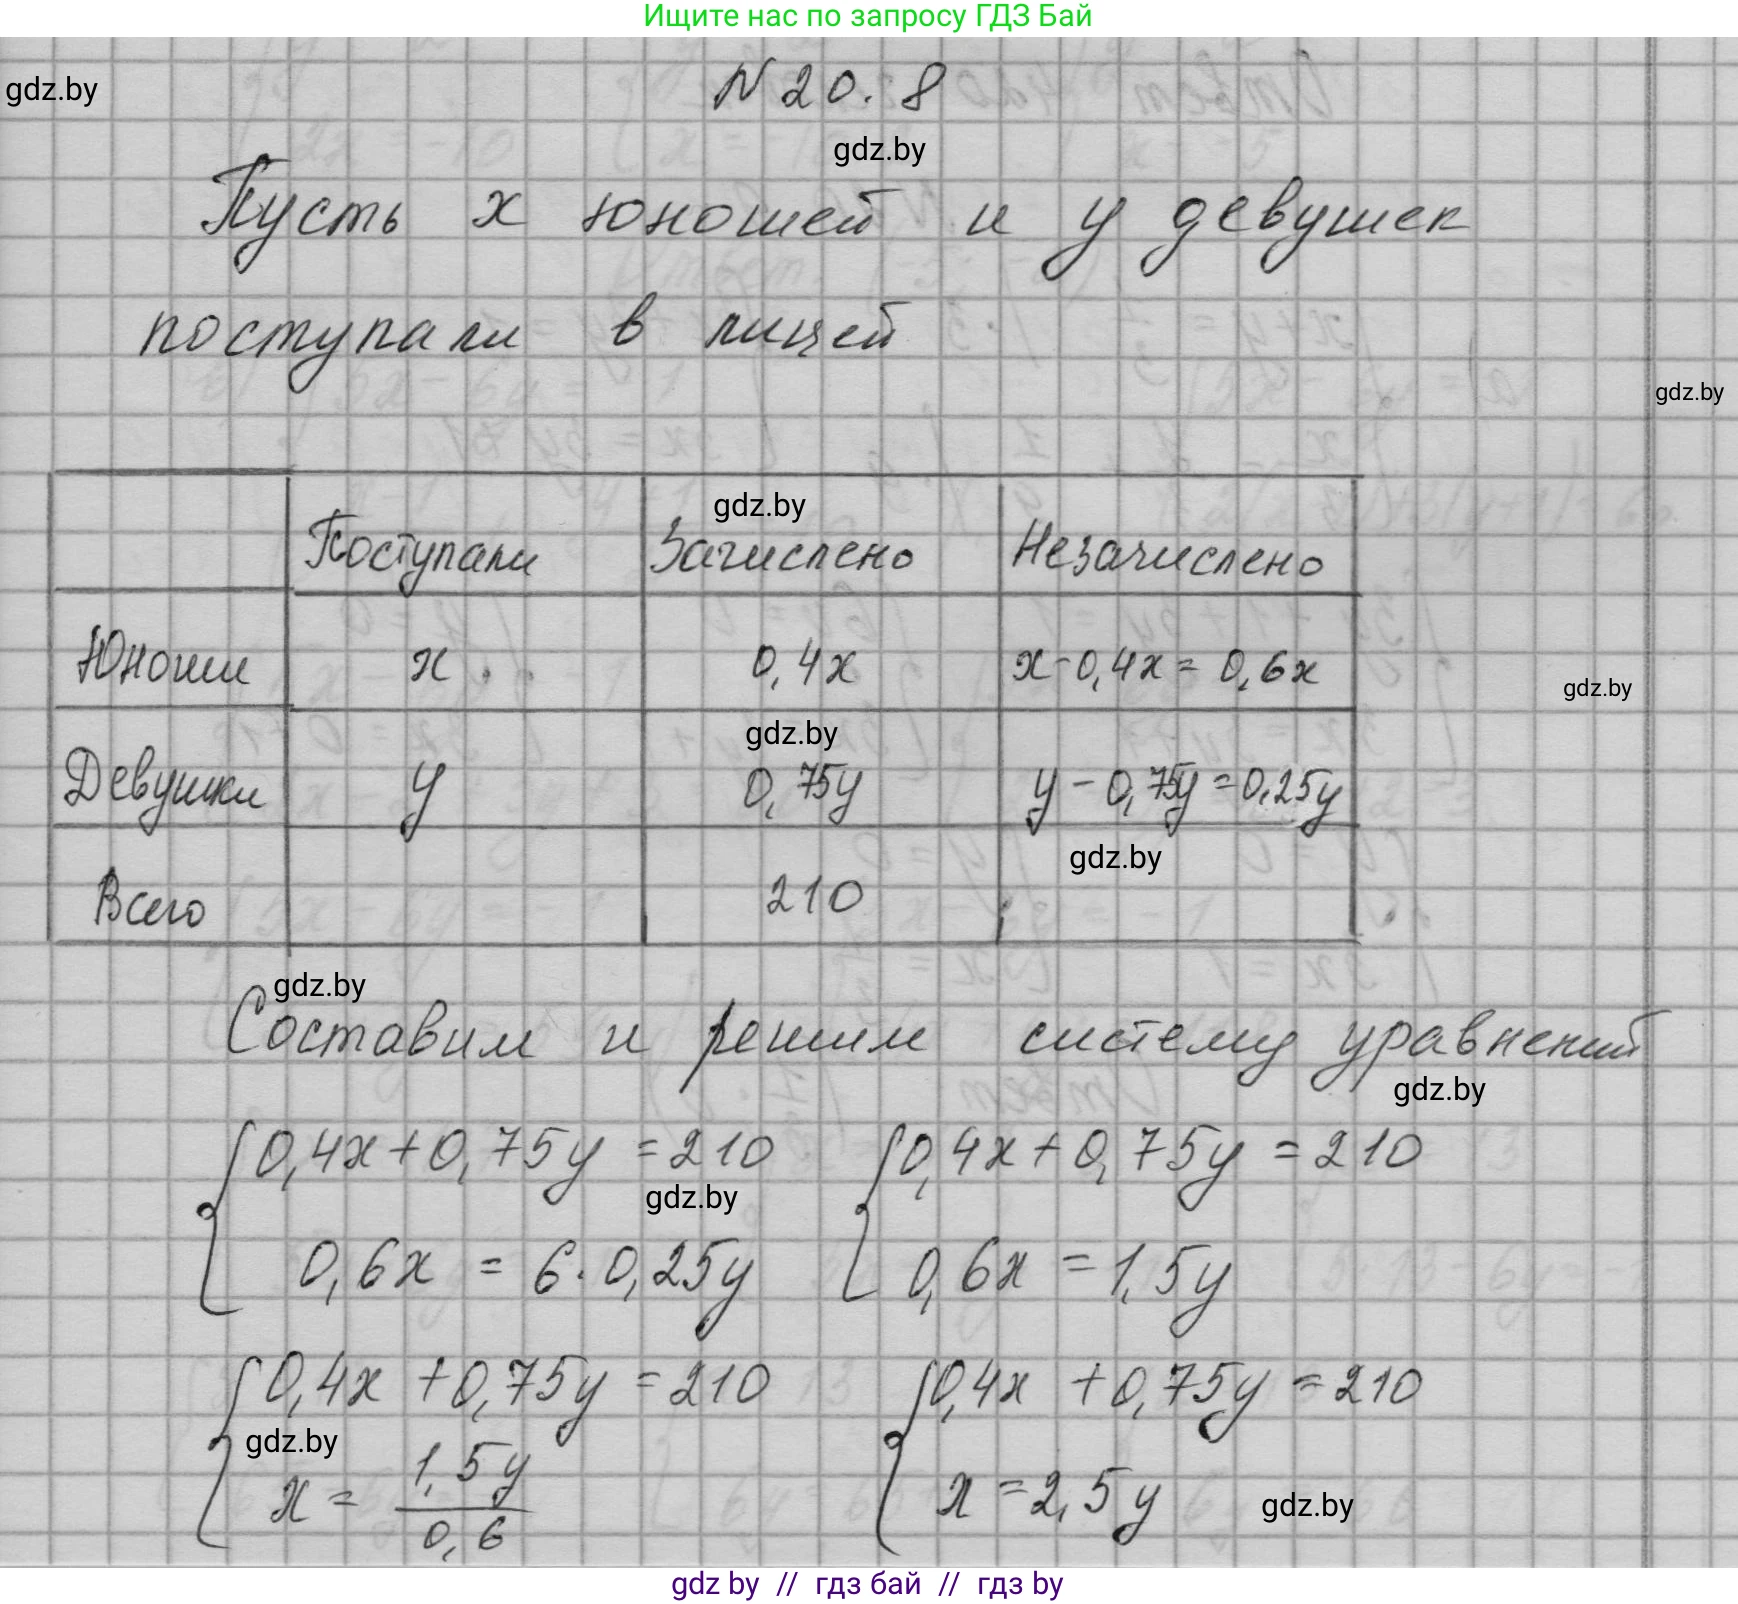 Ищите нас по запросу ГДЗ Бай
gdz.by
N 20.8
gdz.by
Пусть x юношей и y девушек
поступали в лицей
gdz.by
gdz.by
Поступали Зачислено Незачислено
Юноши x 0,4x x-0,4x= 0,6x
gdz.by
gdz.by
Девушки y 0,75y y-0,75y=0,25y
gdz.by
Всего 210
gdz.by
Составим и решим систему уравнений
gdz.by
0,4x+0,75y=210 0,4x+0,75y=210
gdz.by
0,6x = 6·0,25y 0,6x=1,5y
0,4x+0,75y=210 0,4x+0,75y=210
gdz.by
x= 1,5y/0,6 x=2,5y
gdz.by
gdz by // гдз бай // гдз by